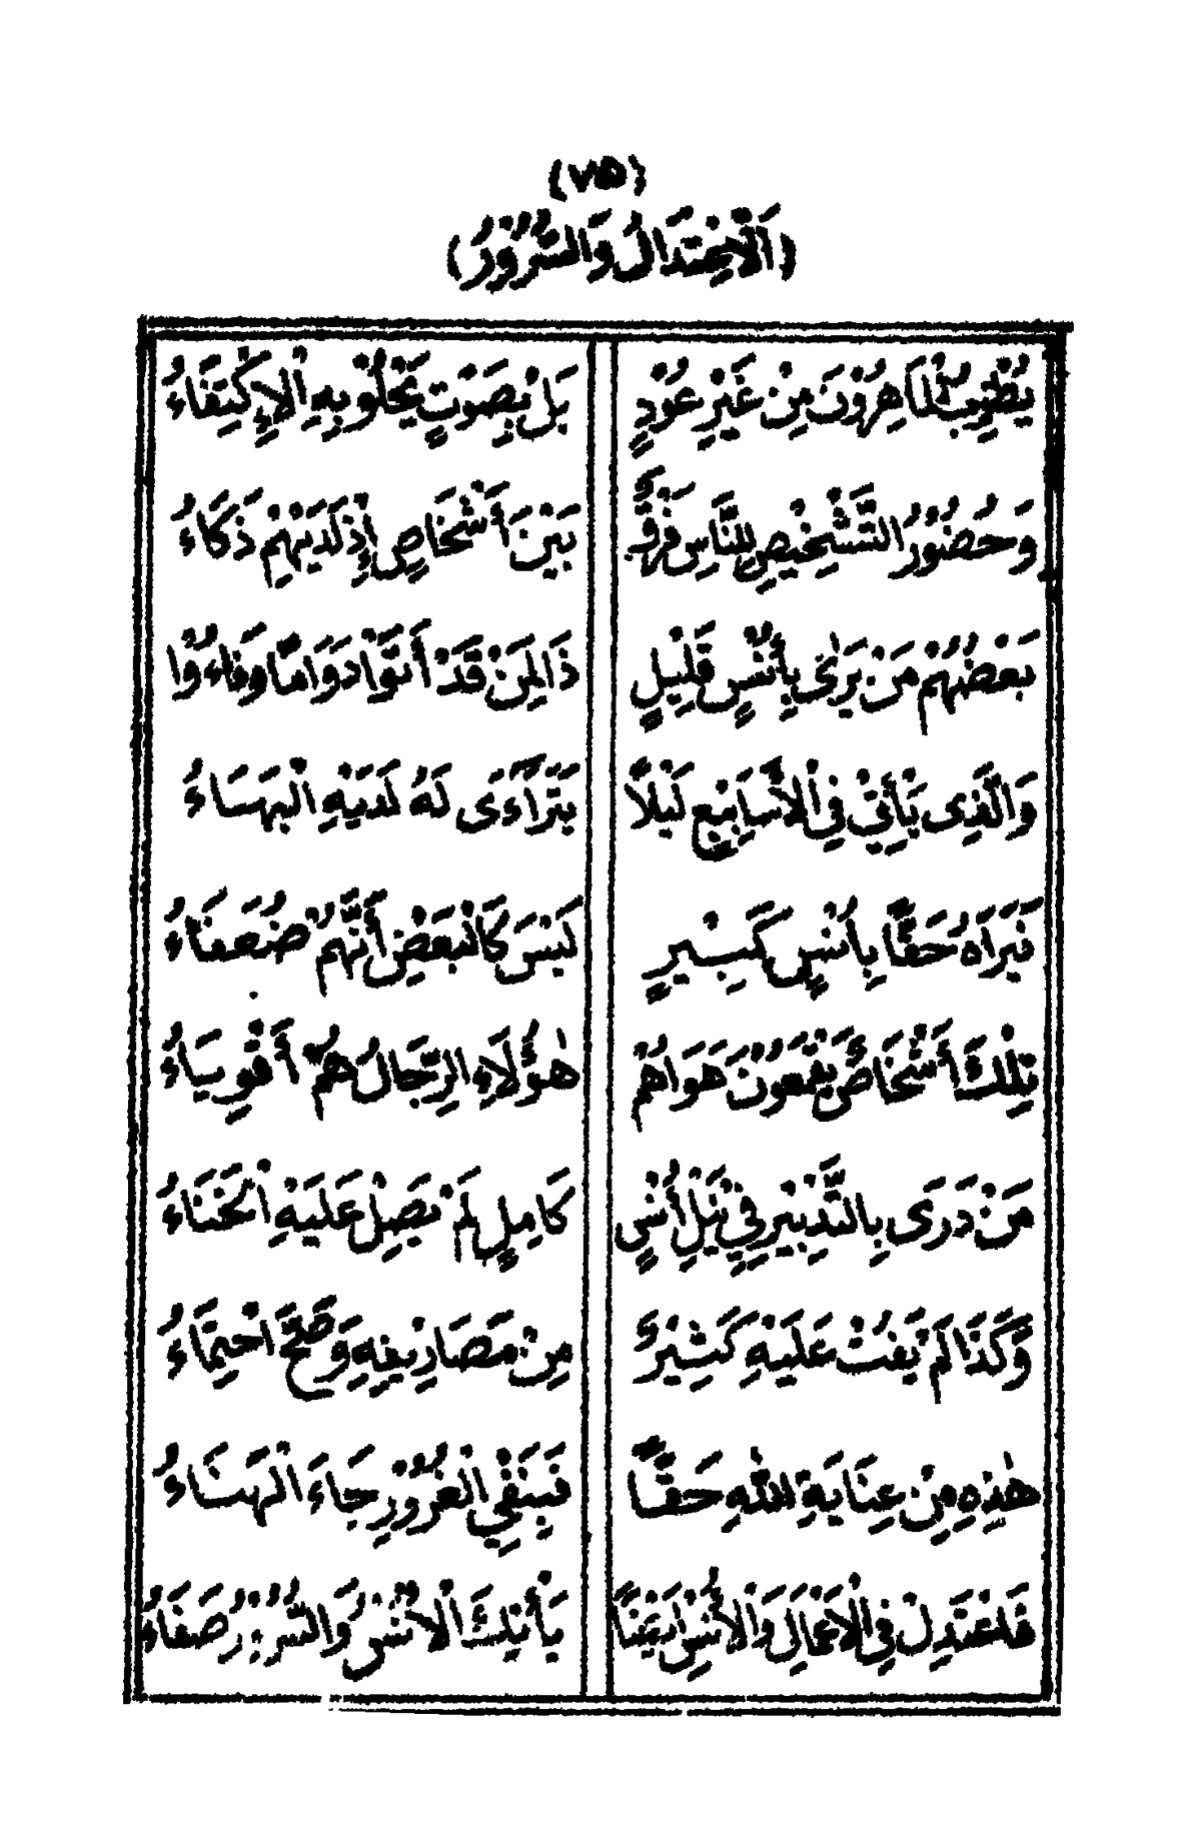 (۷۵)
(اَلْاِعْتِدَالُ وَالسُّرُوْرُ)
يُطْرِبُ الْمَاهِرُوْنَ مِنْ غَيْرِ عُوْدٍ بَلْ بِصَوْتٍ يَحْلُوْ بِهِ الْاِكْتِفَاءُ
وَحُضُوْرُ التَّشْخِيْصِ لِلنَّاسِ فَرْقٌ بَيْنَ أَشْخَاصٍ إِذْ لَدَيْهِمْ ذَكَاءُ
بَعْضُهُمْ مَنْ يَرٰى بِأُنْسٍ قَلِيْلٍ ذَا لِمَنْ قَدْ أَتَوْا دَوَامًا وَفَاءُوْا
وَالَّذِى يَأْتِيْ فِى الْأَسَابِيْعِ لَيْلًا يَتَرَاءَى لَهُ لَدَيْهِ الْبَهَاءُ
فَيَرَاهُ حَقًّا بِأُنْسٍ كَبِيْرٍ لَيْسَ كَالْبَعْضِ أَنَّهُمْ ضُعَفَاءُ
تِلْكَ أَشْخَاصٌ يَقْمَعُوْنَ هَوَاهُمْ هٰؤُلَاءِ الرِّجَالُ هُمْ أَقْوِيَاءُ
مَنْ دَرَى بِالتَّدْبِيْرِ فِيْ نَيْلِ أُنْسٍ كَامِلٍ لَمْ يَصِلْ عَلَيْهِ الْخَنَاءُ
وَكَذَا لَمْ يَفُتْ عَلَيْهِ كَثِيْرٌ مِنْ مَصَارِيْفِهِ وَصَحَّ احْتِمَاءُ
هٰذِهِ مِنْ عِنَايَةِ اللّٰهِ حَقًّا فَبِنَفْيِ الْغُرُوْرِ جَاءَ الْهَنَاءُ
فَاعْتَدِلْ فِى الْاَعْمَالِ وَالْأُنْسِ ايْمَنًا يَأْتِكَ الْاُنْسُ وَالسُّرُوْرُ صَفَاءُ